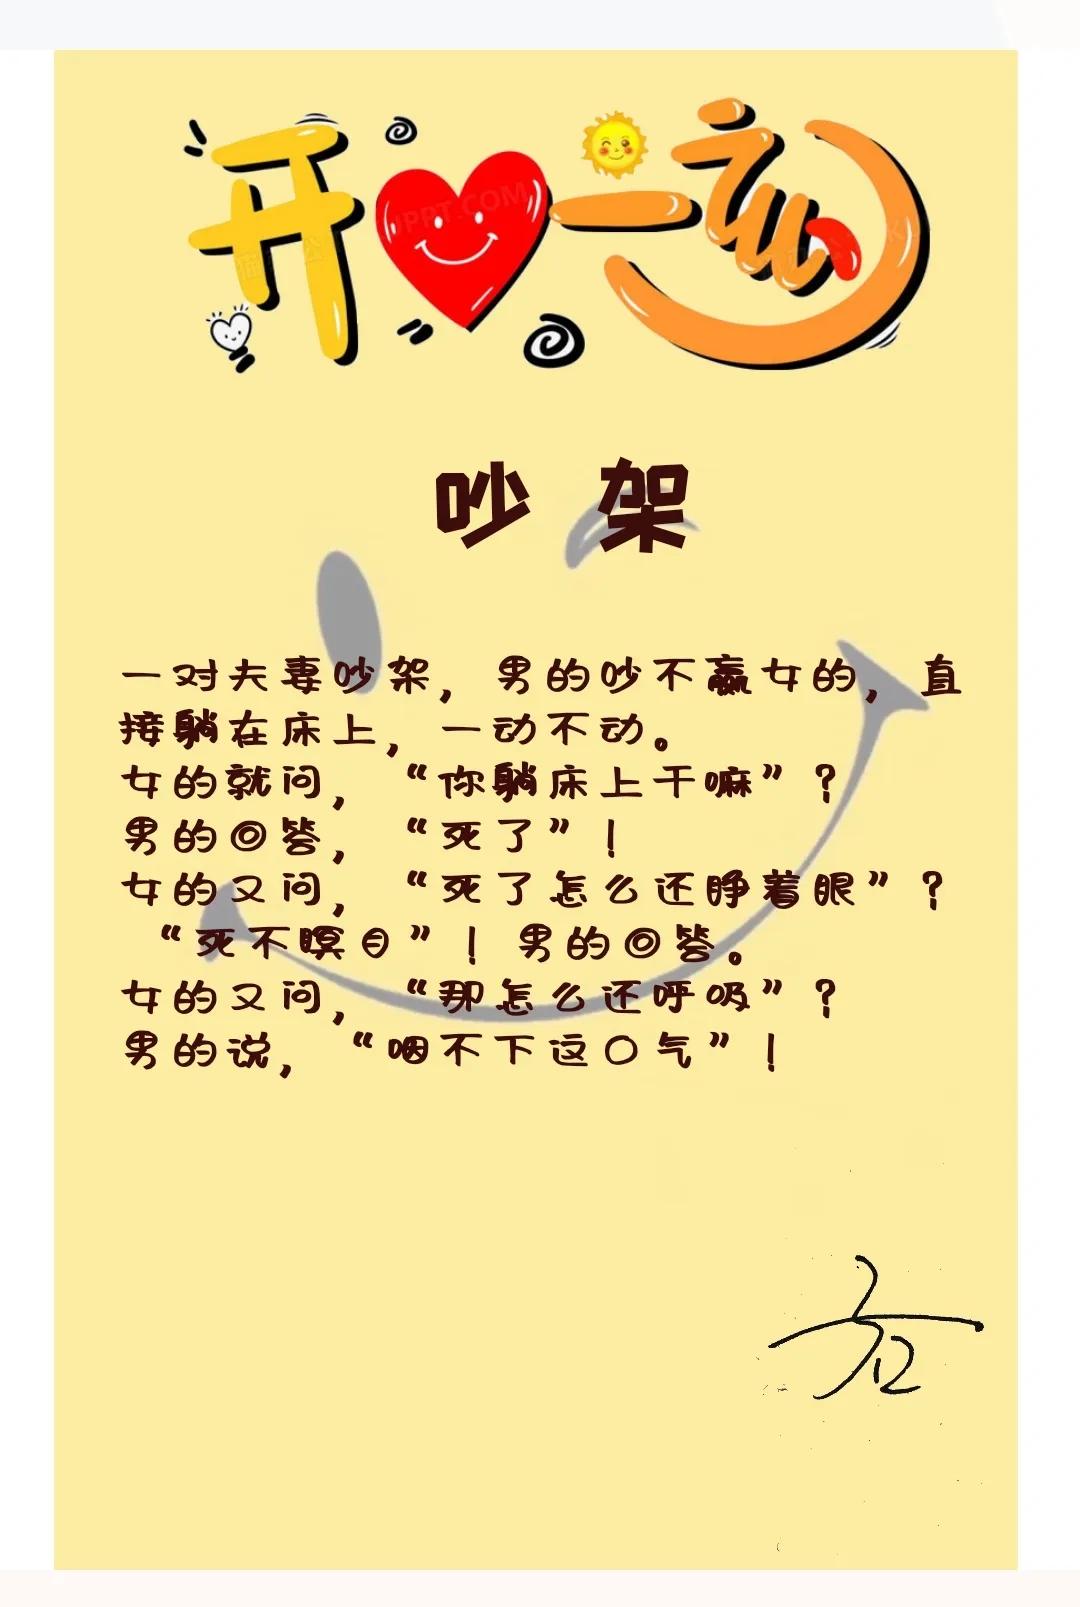 开心一刻
吵 架
一对夫妻吵架，男的吵不赢女的，直
接躺在床上，一动不动。
女的就问，“你躺床上干嘛”？
男的回答，“死了”！
女的又问，“死了怎么还睁着眼”？
“死不瞑目”！男的回答。
女的又问，“那怎么还呼吸”？
男的说，“咽不下这口气”！